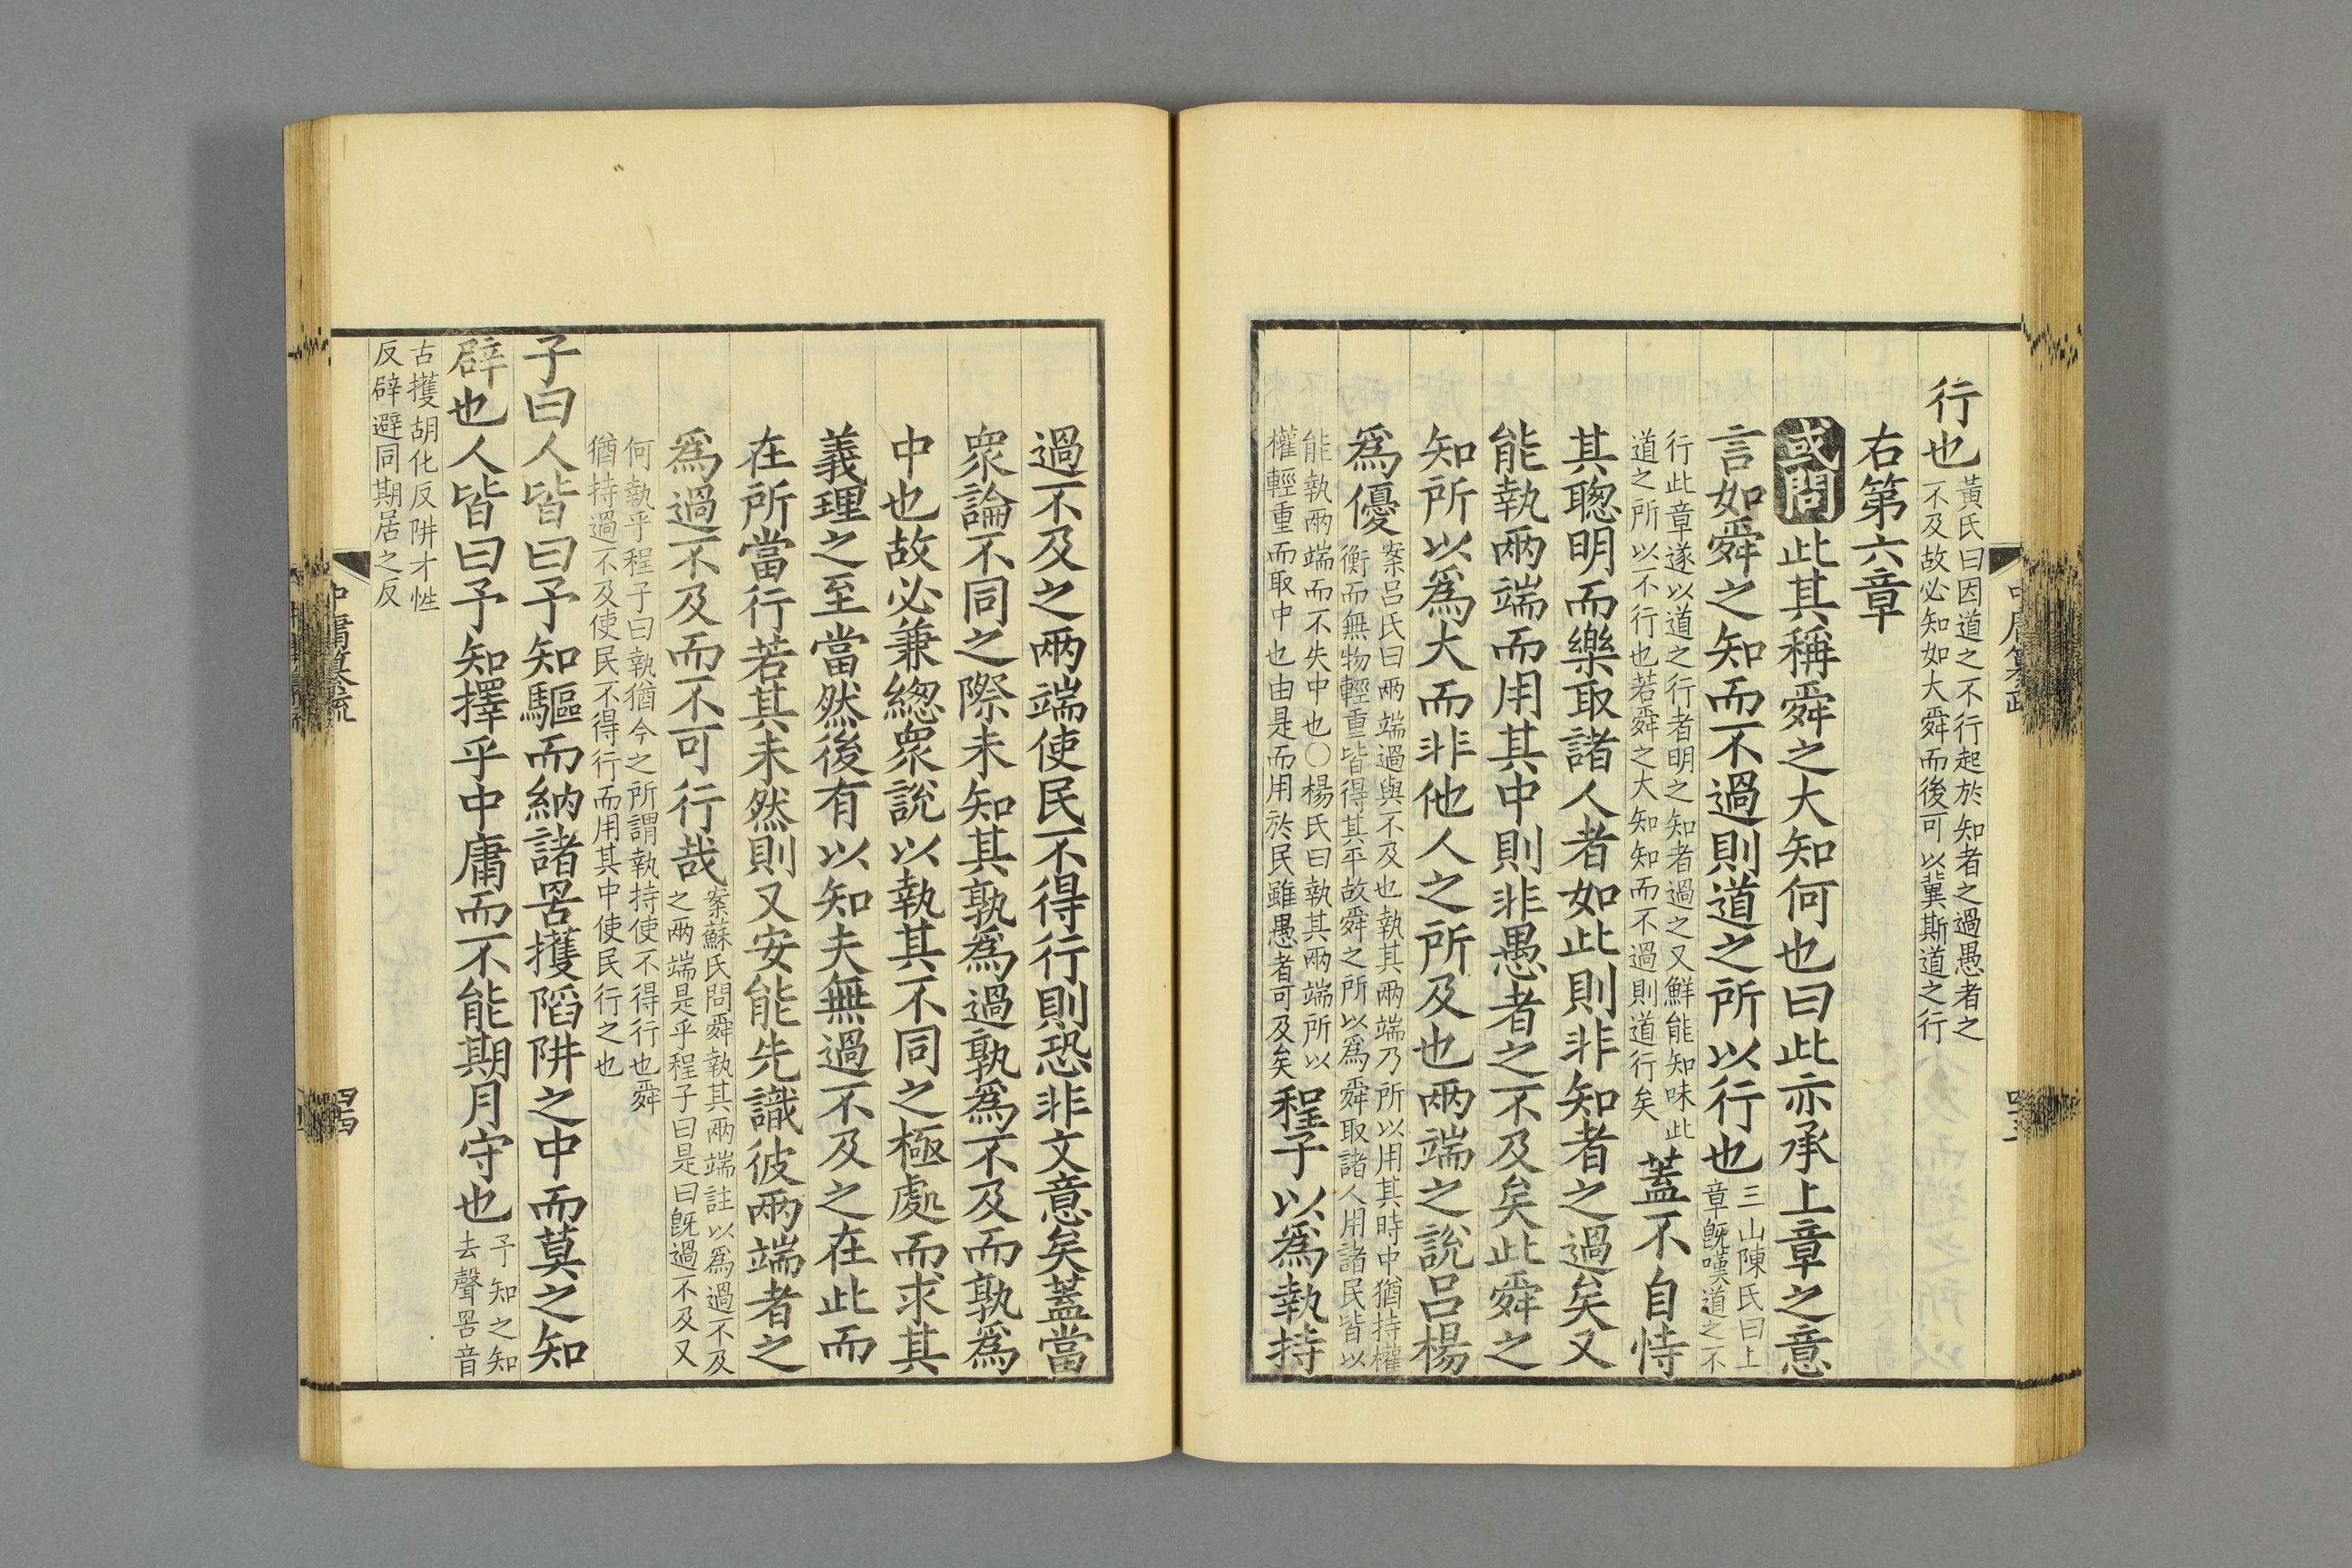 行也黃氏曰因道之不行起於知者之過愚者之
不及故必知如大舜而後可以冀斯道之行
右第六章
或問此其稱舜之大知何也曰此亦承上章之意
言如舜之知而不過則道之所以行也三山陳氏曰上
章旣嘆道之不
行此章遂以道之行者明之知者過之又鮮能知味此
道之所以不行也若舜之大知知而不過則道行矣
蓋不自恃
其聰明而樂取諸人者如此則非知者之過矣又
能執兩端而用其中則非愚者之不及矣此舜之
知所以爲大而非他人之所及也兩端之說呂楊
爲優案呂氏曰兩端過與不及也執其兩端乃所以用其時中猶持權
衡而無物輕重皆得其平故舜之所以爲舜取諸人用諸民皆以
能執兩端而不失中也○楊氏曰執其兩端所以
權輕重而取中也由是而用於民雖愚者可及矣
程子以爲執持
過不及之兩端使民不得行則恐非文意矣蓋當
衆論不同之際未知其孰爲過孰爲不及而孰爲
中也故必兼總衆說以執其不同之極處而求其
義理之至當然後有以知夫無過不及之在此而
在所當行若其未然則又安能先識彼兩端者之
爲過不及而不可行哉案蘇氏問舜執其兩端註以爲過不及
之兩端是乎程子曰是曰旣過不及又
何執乎程子曰執猶今之所謂執持使不得行也舜
猶持過不及使民不得行而用其中使民行之也
子曰人皆曰予知驅而納諸罟擭陷阱之中而莫之知
辟也人皆曰予知擇乎中庸而不能期月守也予知之知
去聲罟音
古擭胡化反阱才性
反辟避同期居之反
中庸纂疏
四十四